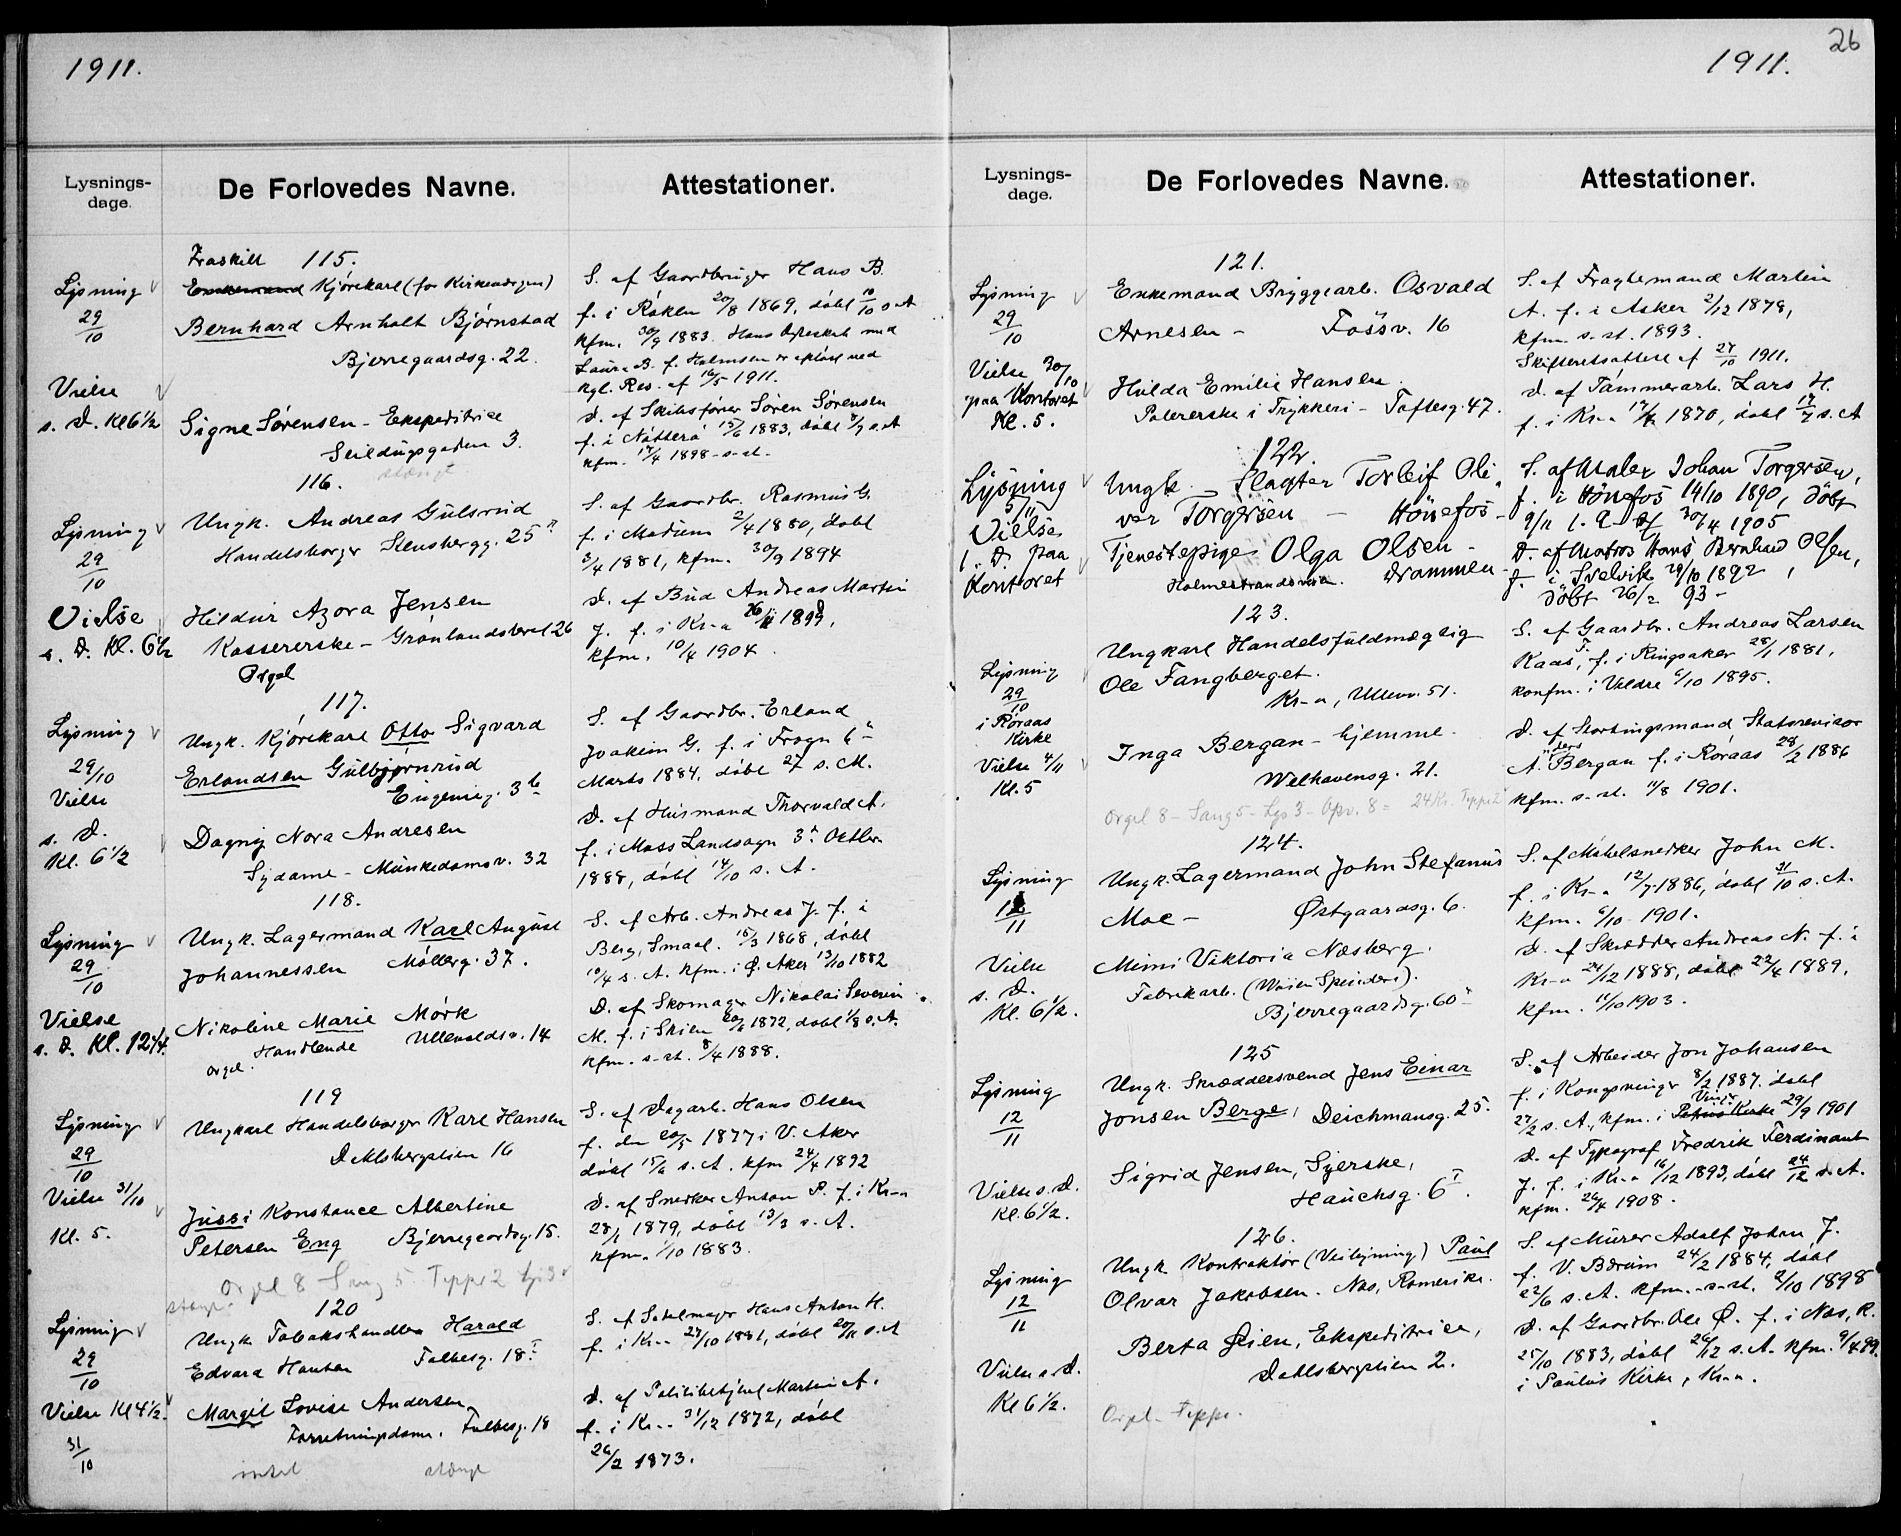 1911.
Lysnings-
dage.
De Forlovedes Navne.
Attestationer.
Lysning
29/10
Vielse
s. D. Kl 6½
Fraskilt 115.
Enkemand Kjørekarl (for Kirkevergen)
Bernhard Arnholt Bjørnstad
Bjerregaardsg. 22.
Signe Sørensen - Ekspeditrice
Seildugsgaden 3.
stængt
S. af Gaardbruger Hans B.
f. i Røken 20/8 1869, døbt 10/10 s. A
kfm. 30/9 1883. Hans Ægteskab med
Laura B. f. Holmsen er opløst ved
kgl. Res. af 16/5 1911.
D. af Skibsfører Søren Sørensen
f. i Nøtterø 15/6 1883, døbt 8/7 s. A
kfm. 17/4 1898 - s. st.
Lysning
29/10
Vielse
s. D. Kl. 6½
116.
Ungk. Andreas Gulsrud
Handelsborger Stensbergg. 25
Hildur Azora Jensen
Kassererske - Grønlandsleret 26
Orgel
S. af Gaardbr. Rasmus G.
f. i Modum 2/4 1880, døbt
3/4 1881, kfm. 30/9 1894
D. af Bud Andreas Martin
J. f. i Kr-a
kfm. 10/4 1904
Lysning
29/10
Vielse
s. D.
Kl. 6½
117.
Ungk. Kjørekarl Otto Sigvard
Erlandsen Gulbjørnrud
Eugenieg. 3b
Dagny Nora Andresen
Sydame - Munkedamsv. 32
S. af Gaardbr. Erland
Joakim G. f. i Frogn 6
Marts 1884, døbt 27 s. M.
D. af Husmand Thorvald A.
f. i Moss Landsogn 3 Octbr
1888, døbt 14/10 s. A.
Lysning
29/10
Vielse
s. D. Kl. 12¼
118.
Ungk. Lagermand Karl August
Johannessen Møllerg. 37.
Nikoline Marie Mørk
Handlende Ullevoldsv. 14
Orgel.
S. af Arb. Andreas J. f. i
Berg, Smaal. 15/3 1868, døbt
10/4 s. A. Kfm. i Ø. Aker 13/10 1882
D. af Skomager Nikolai Severin
M. f. i Skien 1872, døbt 1/8 s. A.
kfm. s. st. 8/4 1888.
Lysning
29/10
Vielse 31/10
Kl. 5.
119
Ungkarl Handelsborger Karl Hansen
Dahlsbergstien 16
Jussi Konstance Albertine
Petersen Eng Bjerregaardsg. 15.
Orgel 8 Sang 5 Teppe 2 Lys 3
S. af Dagarb. Hans Olsen
f. den 20/5 1877 i V. Aker
døbt s. A. kfm 24/4 1892
D. af Snedker Anton P. f. i Kr-a
28/1 1879, døbt 13/3 s. A.
kfm. 1/10 1883.
Lysning
29/10
Vielse Kl 4½
31/10
stængt
120
Ungk Tobakshandler Harald
Edvard Hansen Falbesg. 18 I
Margit Lovise Andersen
Forretningsdame. Falbesg. 18
intet stængt
S. af Sadelmager Hans Anton H.
f. i Kr-a 27/10 1881, døbt s. A
D. af Politibetjent Martin A.
f. i Kr-a 31/12 1872, døbt
26/2 1873.
26
1911.
Lysnings-
dage.
De Forlovedes Navne.
Attestationer.
Lysning
29/10
Vielse 30/10
paa Kontoret
Kl. 5.
121.
Enkemand Bryggearb. Osvald
Arnesen - Fossv. 16
Hilda Emilie Hansen
Polererske i Trykkeri - Toftesg 47.
S. af Fragtemand Martin
A. f. i Asker 2/12 1878,
kfm. s. st. 1893.
Skifteretsattest af 27/10 1911.
D. af Tømmerarb. Lars H.
f. i Kr-a 1870, døbt 17/7 s. A
Lysning
5/11
Vielse
s. D. paa
Kontoret
122.
Ungk. Slagter Torleif Oli-
ver Torgersen - Hønefos -
Tjenestepige Olga Olsen -
Holmestrandsveien. Drammen -
S. af Maler Johan Torgersen,
f. i Hønefos 14/10 1890, døbt
9/11 s. A. kf 30/4 1905
D. af Matros Hans Bernhard Olsen,
f. i Svelvik 28/10 1892,
døbt 26/2 93 -
Lysning
29/10
i Røraas
Kirke
Vielse 4/11
Kl. 5
123.
Ungkarl Handelsfuldmægtig
Ole Fangberget.
Kr-a, Ullevv. 51.
Inga Bergan - hjemme.
Welhavensg. 21.
Orgel 8 - Sang 5 - Lys 3 - Opv. 8 = 24 Kr. Teppe 2
S. af Gaardbr. Andreas Larsen
Kaas, f. i Ringsaker 28/1 1881,
konfm. i Veldre 6/10 1895.
D. af Stortingsmand Statsrevisor
A. Bergan f. i Røraas 28/2 1886
kfm. s. st. 11/8 1901.
Lysning
12/11
Vielse
s. D.
Kl. 6½.
124.
Ungk. Lagermand John Stefanus
Moe - Østgaardsg. 6.
Mimi Viktoria Næsberg.
Fabrikarb. (Vøien Spinderi).
Bjerregaardsg. 60
S. af Møbelsnedker John M.
f. i Kr-a 12/7 1886, døbt 31/10 s. A.
kfm. 6/10 1901.
D. af Skrædder Andreas N. f. i
Kr-a 24/12 1888, døbt 22/4 1889,
kfm. 11/10 1903.
Lysning
12/11
Vielse s. D.
Kl. 6½.
125
Ungk. Skræddersvend Jens Einar
Jonsen Berge, Deichmansg. 25.
Sigrid Jensen, Syerske,
Hauchsg. 6 I.
S. af Arbeider Jon Johansen
f. i Kongsvinger 8/2 1887. døbt
27/2 s. A., kfm. i Petrus Kirke 29/9 1901
D. af Typograf Fredrik Ferdinant
J. f. i Kr-a 16/12 1893, døbt 24/12 s. A.
kfm. 26/4 1908.
Lysning
12/11
Vielse s. D.
Kl 6½.
126.
Ungk Kontraktør (Veibygning) Paul
Olvar Jakobsen. Nes, Romerike.
Berta Øien, Ekspeditrice,
Dahlsbergstien 2.
Orgel - Teppe.
S. af Murer Adolf Johan J.
f. V. Bærum 24/2 1884, døbt
22/6 s. A. kfm. s. st. 2/10 1898
D. af Gaardbr. Ole Ø. f. i Nes, R.
25/10 1883, døbt 26/12 s. A. kfm. 9/4 99.
i Paulus Kirke, Kr-a.